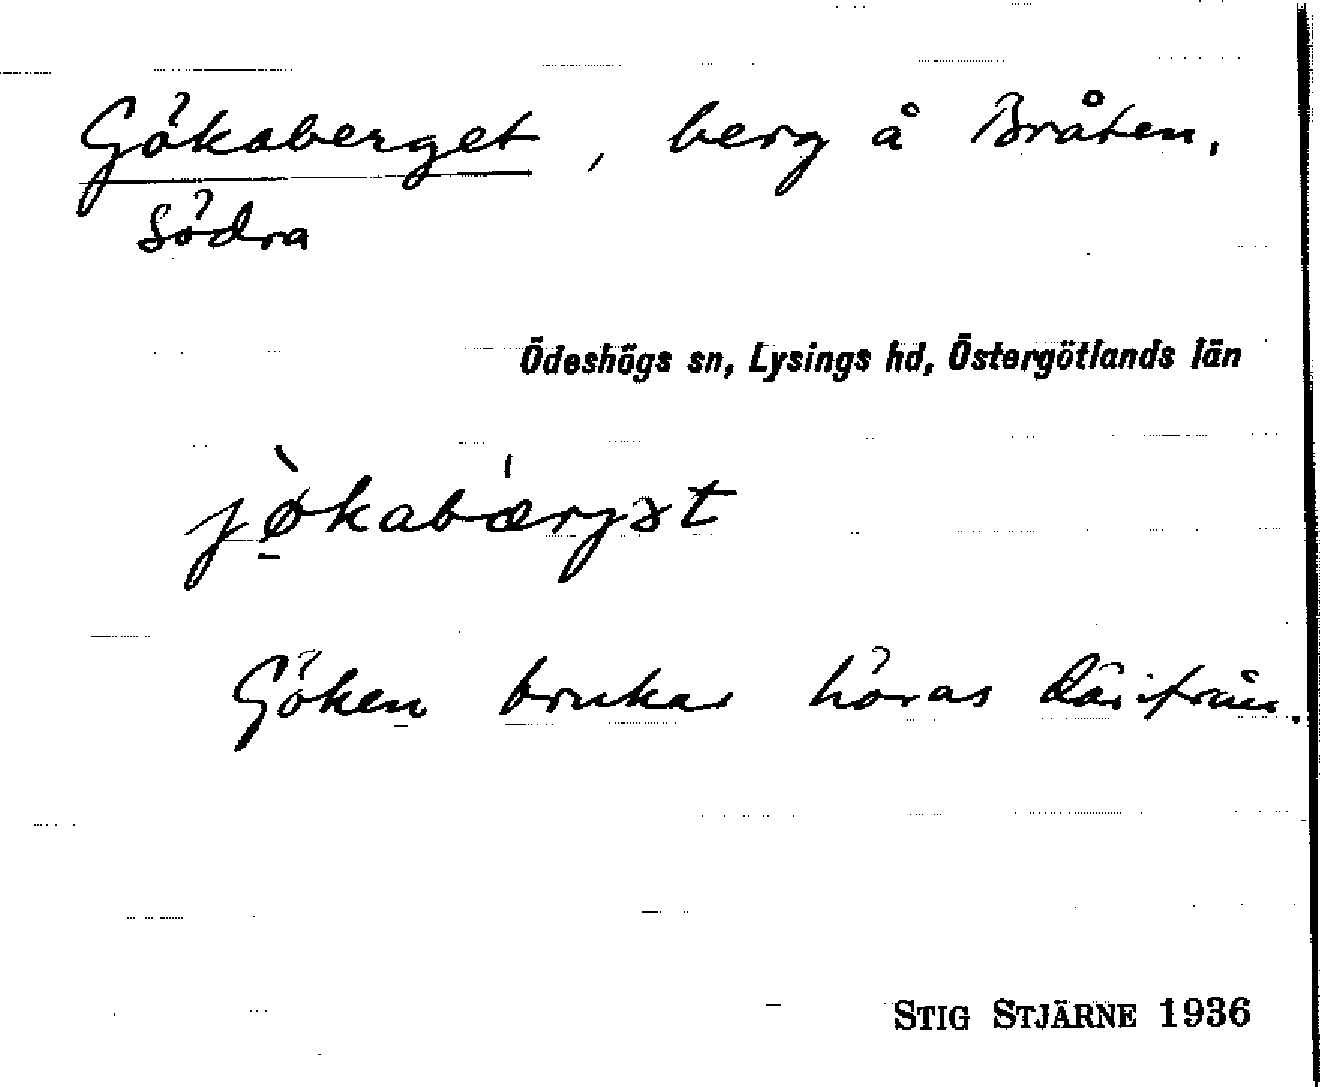 Gökaberget, berg å Bråten,
Södra
Ödeshögs sn, Lysings hd, Östergötlands län
jø̠̀kabæ̍rjət
Göken brukar höras därifrån.
STIG STJÄRNE 1936